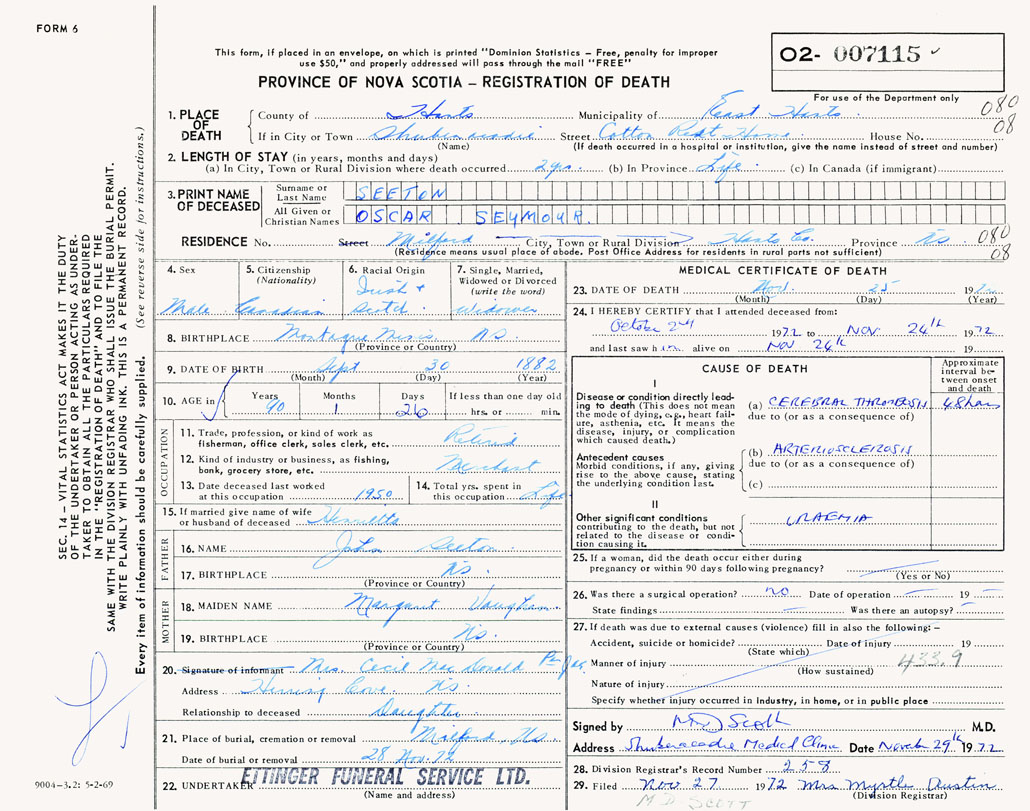 FORM 6
This form, if placed in an envelope, on which is printed "Dominion Statistics – Free, penalty for improper
use $50," and properly addressed will pass through the mail "FREE"
PROVINCE OF NOVA SCOTIA – REGISTRATION OF DEATH
O2- 007115
For use of the Department only
080
08
1. PLACE OF DEATH County of Hants Municipality of East Hants
If in City or Town Shubenacadie Street Cotton Rest Home House No.
(Name) (If death occurred in a hospital or institution, give the name instead of street and number)
2. LENGTH OF STAY (in years, months and days)
(a) In City, Town or Rural Division where death occurred 2 yrs. (b) In Province Life (c) In Canada (if immigrant)
3. PRINT NAME OF DECEASED Surname or Last Name SEETON
All Given or Christian Names OSCAR SEYMOUR.
RESIDENCE No. Street Milford City, Town or Rural Division Hants Co. Province NS
080
08
(Residence means usual place of abode. Post Office Address for residents in rural parts not sufficient)
4. Sex Male
5. Citizenship (Nationality) Canadian
6. Racial Origin Irish + Scotch
7. Single, Married, Widowed or Divorced (write the word) Widower
8. BIRTHPLACE NS
(Province or Country)
9. DATE OF BIRTH Sept 30 1882
(Month) (Day) (Year)
10. AGE in Years 90 Months 1 Days 26 If less than one day old hrs. or min.
OCCUPATION
11. Trade, profession, or kind of work as
fisherman, office clerk, sales clerk, etc. Retired
12. Kind of industry or business, as fishing,
bank, grocery store, etc. Merchant
13. Date deceased last worked
at this occupation 1950
14. Total yrs. spent in
this occupation Life
15. If married give name of wife
or husband of deceased Henrietta
FATHER
16. NAME John Seeton
17. BIRTHPLACE NS.
(Province or Country)
MOTHER
18. MAIDEN NAME Margaret Vaughan
19. BIRTHPLACE NS.
(Province or Country)
20. Signature of informant Mrs. Cecil MacDonald Per
Address Herring Cove. NS
Relationship to deceased Daughter
21. Place of burial, cremation or removal Milford, NS.
Date of burial or removal 28 Nov. 72
22. UNDERTAKER ETTINGER FUNERAL SERVICE LTD.
(Name and address)
MEDICAL CERTIFICATE OF DEATH
23. DATE OF DEATH Nov. 25 1972
(Month) (Day) (Year)
24. I HEREBY CERTIFY that I attended deceased from:
October 2nd 1972 to Nov. 24th 1972
and last saw him alive on Nov 24th 19
CAUSE OF DEATH
Approximate interval between onset and death
I
Disease or condition directly leading to death (This does not mean the mode of dying, e.g., heart failure, asthenia, etc. It means the disease, injury, or complication which caused death.)
(a) CEREBRAL THROMBOSIS 48 hours
due to (or as a consequence of)
Antecedent causes
Morbid conditions, if any, giving rise to the above cause, stating the underlying condition last.
(b) ARTERIOSCLEROSIS
due to (or as a consequence of)
(c)
II
Other significant conditions contributing to the death, but not related to the disease or condition causing it.
URAEMIA
25. If a woman, did the death occur either during
pregnancy or within 90 days following pregnancy?
(Yes or No)
26. Was there a surgical operation? no Date of operation 19
State findings Was there an autopsy?
27. If death was due to external causes (violence) fill in also the following: –
Accident, suicide or homicide? Date of injury 19
(State which)
Manner of injury 433.9
(How sustained)
Nature of injury
Specify whether injury occurred in industry, in home, or in public place
Signed by M D Scott M.D.
Address Shubenacadie Medical Clinic Date November 29th 1972
28. Division Registrar's Record Number 258
29. Filed Nov 27 1972 Mrs Myrtle Austin
(Division Registrar)
M D SCOTT
SEC. 14 – VITAL STATISTICS ACT MAKES IT THE DUTY
OF THE UNDERTAKER OR PERSON ACTING AS UNDER-
TAKER TO OBTAIN ALL THE PARTICULARS REQUIRED
IN THE "REGISTRATION OF DEATH" AND TO FILE THE
SAME WITH THE DIVISION REGISTRAR WHO SHALL ISSUE THE BURIAL PERMIT.
WRITE PLAINLY WITH UNFADING INK. THIS IS A PERMANENT RECORD.
Every item of information should be carefully supplied. (See reverse side for instructions.)
9004-3.2: 5-2-69